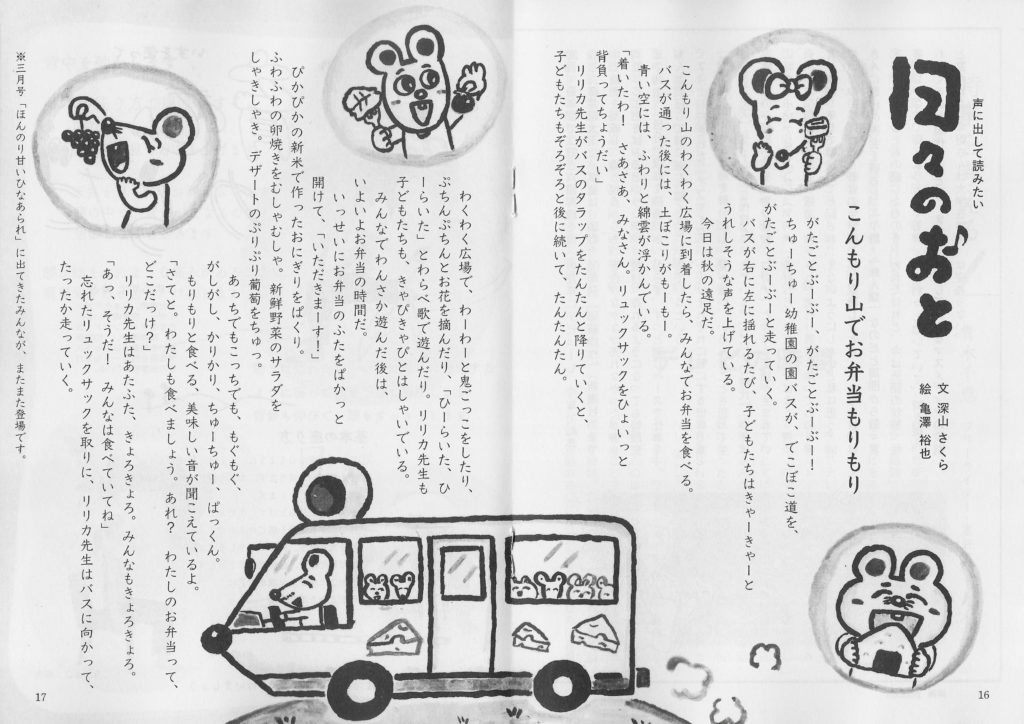 声に出して読みたい
日々のおと
文 深山 さくら
絵 亀澤 裕也
こんもり山でお弁当もりもり
がたごとぶーぶー、がたごとぶーぶー！
ちゅーちゅー幼稚園の園バスが、でこぼこ道を、
がたごとぶーぶーと走っていく。
バスが右に左に揺れるたび、子どもたちはきゃーきゃーと
うれしそうな声を上げている。
今日は秋の遠足だ。
こんもり山のわくわく広場に到着したら、みんなでお弁当を食べる。
バスが通った後には、土ぼこりがもーもー。
青い空には、ふわりと綿雲が浮かんでいる。
「着いたわ！ さあさあ、みなさん。リュックサックをひょいっと
背負ってちょうだい」
リリカ先生がバスのタラップをたんたんと降りていくと、
子どもたちもぞろぞろと後に続いて、たんたんたん。
わくわく広場で、わーわーと鬼ごっこをしたり、
ぷちんぷちんとお花を摘んだり、「ひーらいた、ひ
ーらいた」とわらべ歌で遊んだり。リリカ先生も
子どもたちも、きゃぴきゃぴとはしゃいでいる。
みんなでわんさか遊んだ後は、
いよいよお弁当の時間だ。
いっせいにお弁当のふたをぱかっと
開けて、「いただきまーす！」
ぴかぴかの新米で作ったおにぎりをぱくり。
ふわふわの卵焼きをむしゃむしゃ。新鮮野菜のサラダを
しゃきしゃき。デザートのぷりぷり葡萄をちゅっ。
あっちでもこっちでも、もぐもぐ、
がしがし、かりかり、ちゅーちゅー、ぱっくん。
もりもりと食べる、美味しい音が聞こえているよ。
「さてと。わたしも食べましょう。あれ？ わたしのお弁当って、
どこだっけ？」
リリカ先生はあたふた、きょろきょろ。みんなもきょろきょろ。
「あっ、そうだ！ みんなは食べていてね」
忘れたリュックサックを取りに、リリカ先生はバスに向かって、
たったか走っていく。
※三月号「ほんのり甘いひなあられ」に出てきたみんなが、またまた登場です。
17
16